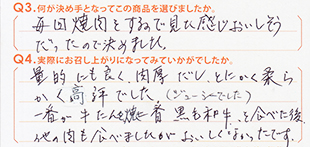 Q3.何が決め手となってこの商品を選びましたか。
毎回焼肉をするので見た感じおいしそう
だったので決めました。
Q4.実際にお召し上がりになってみていかがでしたか。
量的にも良く、肉厚だし、とにかく柔ら
かく高評でした(ジューシーでした)
一番が牛たん焼一番 黒毛和牛を食べた後、
他の肉も食べましたがおいしくなかったです。